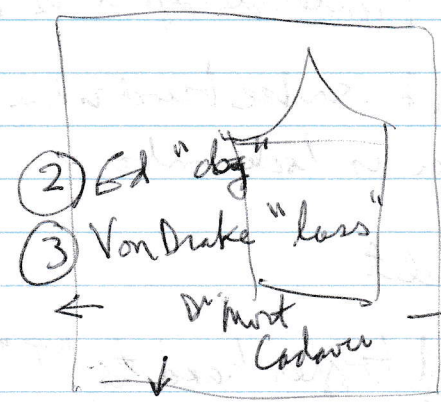 ② Ed "dog"
③ Von Drake "loss"
Dr Mort
Cadaver